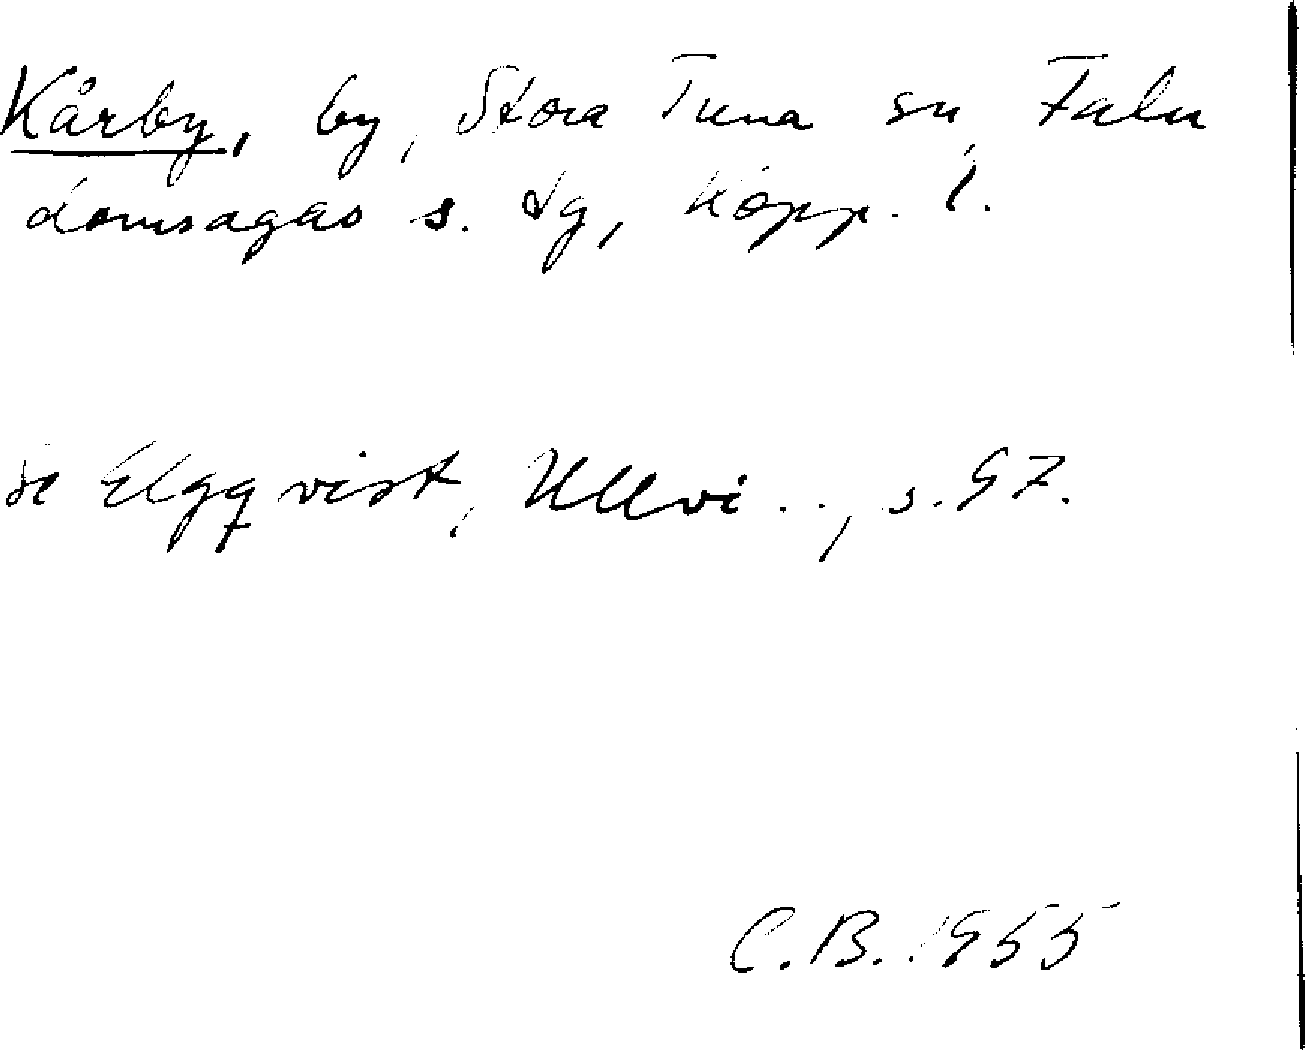 Kårby, by, Stora Tuna sn, Falu
domsagas s. tg, Kopp. l.
se Elgqvist, Ullvi . . , s. 97.
C.B. 1955